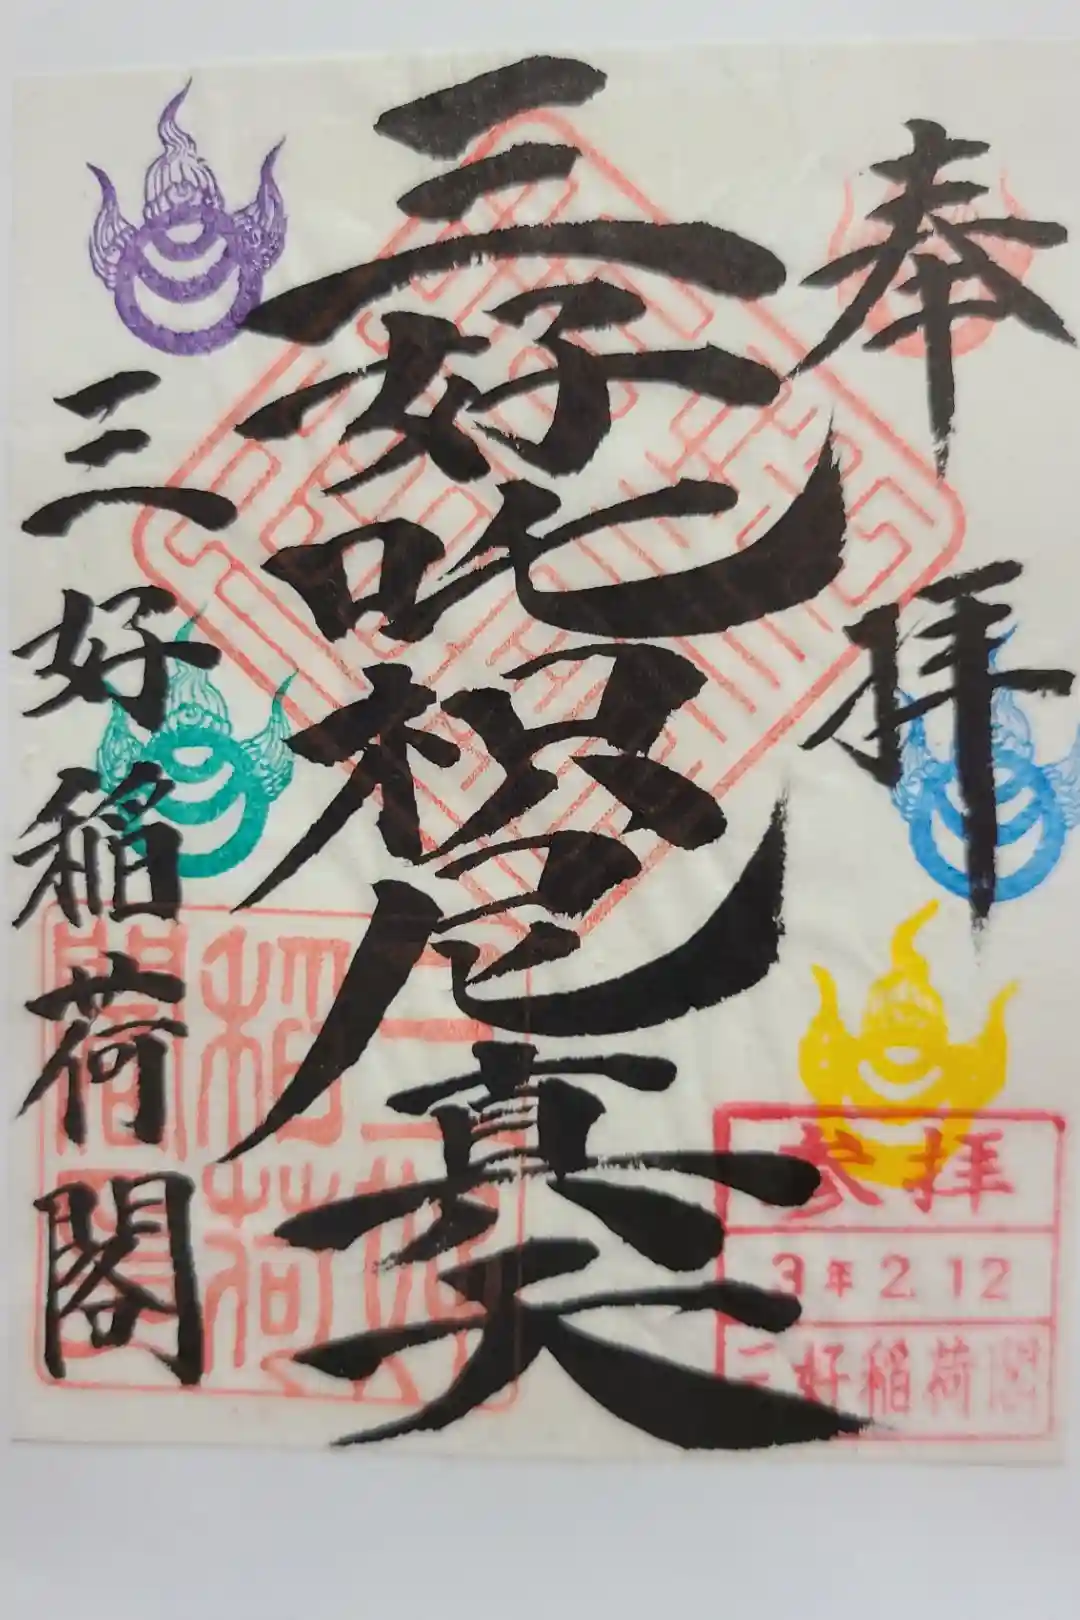 奉拝
三好吒枳尼真天
三好稲荷閣
参拝
3年2.12
三好稲荷閣
三好
稲荷
閣